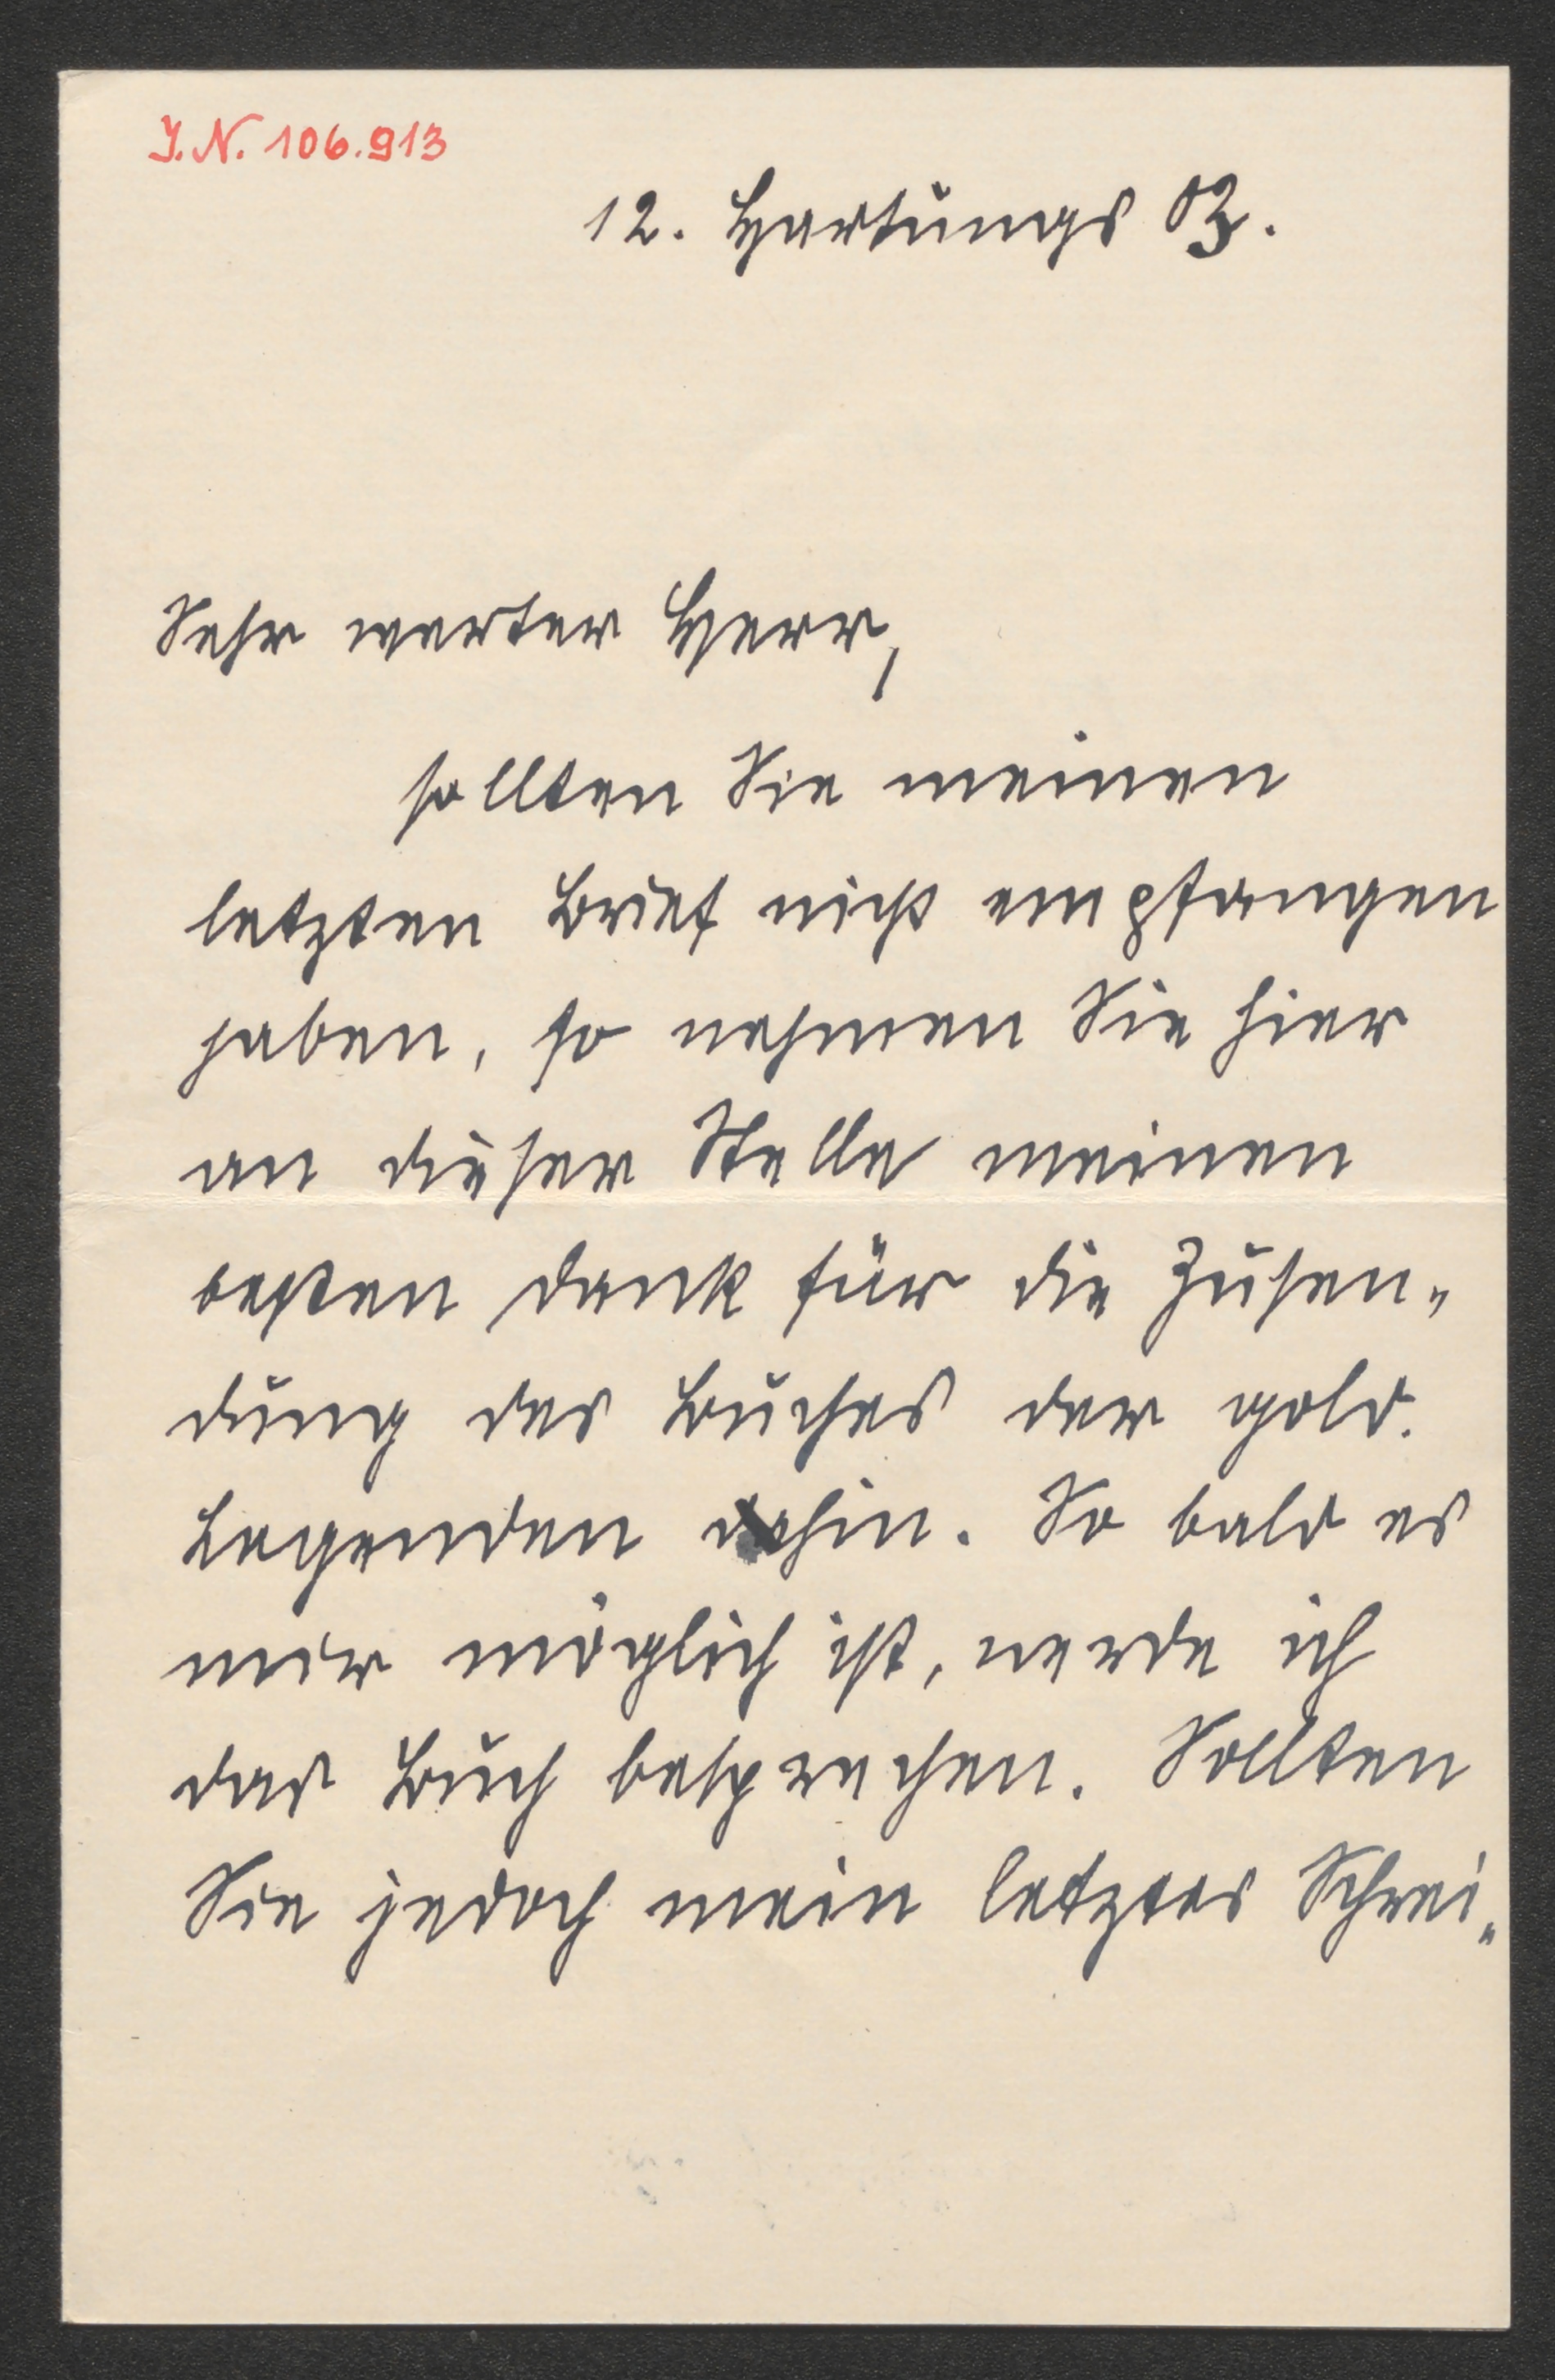 J.N. 106.913
12. Hartungs 03.
Sehr werter Herr,
sollten Sie meinen
letzten Brief nicht empfangen
haben, so nehmen Sie hier
an dieser Stelle meinen
besten Dank für die Zusen-
dung des Buches der gold.
Legenden hin. So bald es
mir möglich ist, werde ich
das Buch besprechen. Sollten
Sie jedoch mein letztes Schrei-